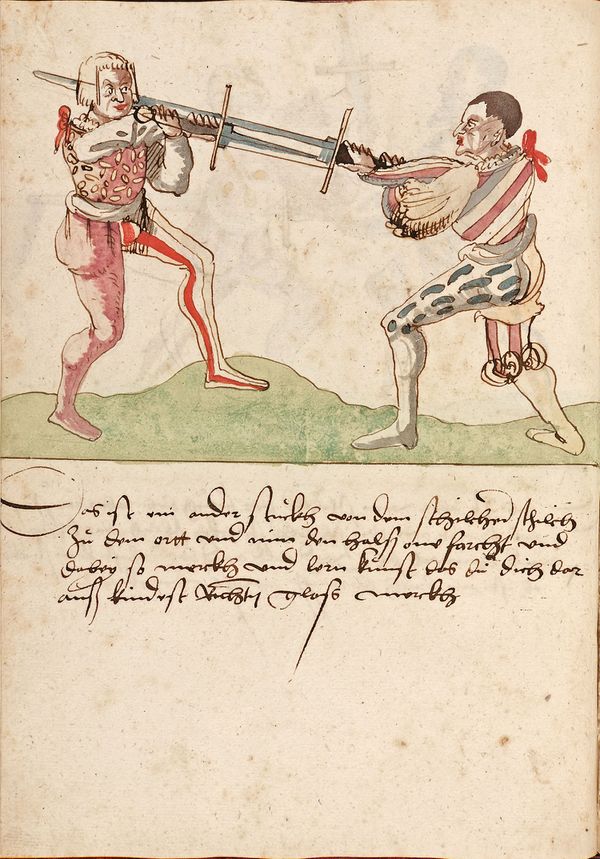 Das ist ein ander stuckh von dem schilcher Schilch
Zu dem ortt vnd nim den halß one farcht vnd
dabey so merckh vnd lern kunst das du dich dar
auß kindest Richtn gloss merckh